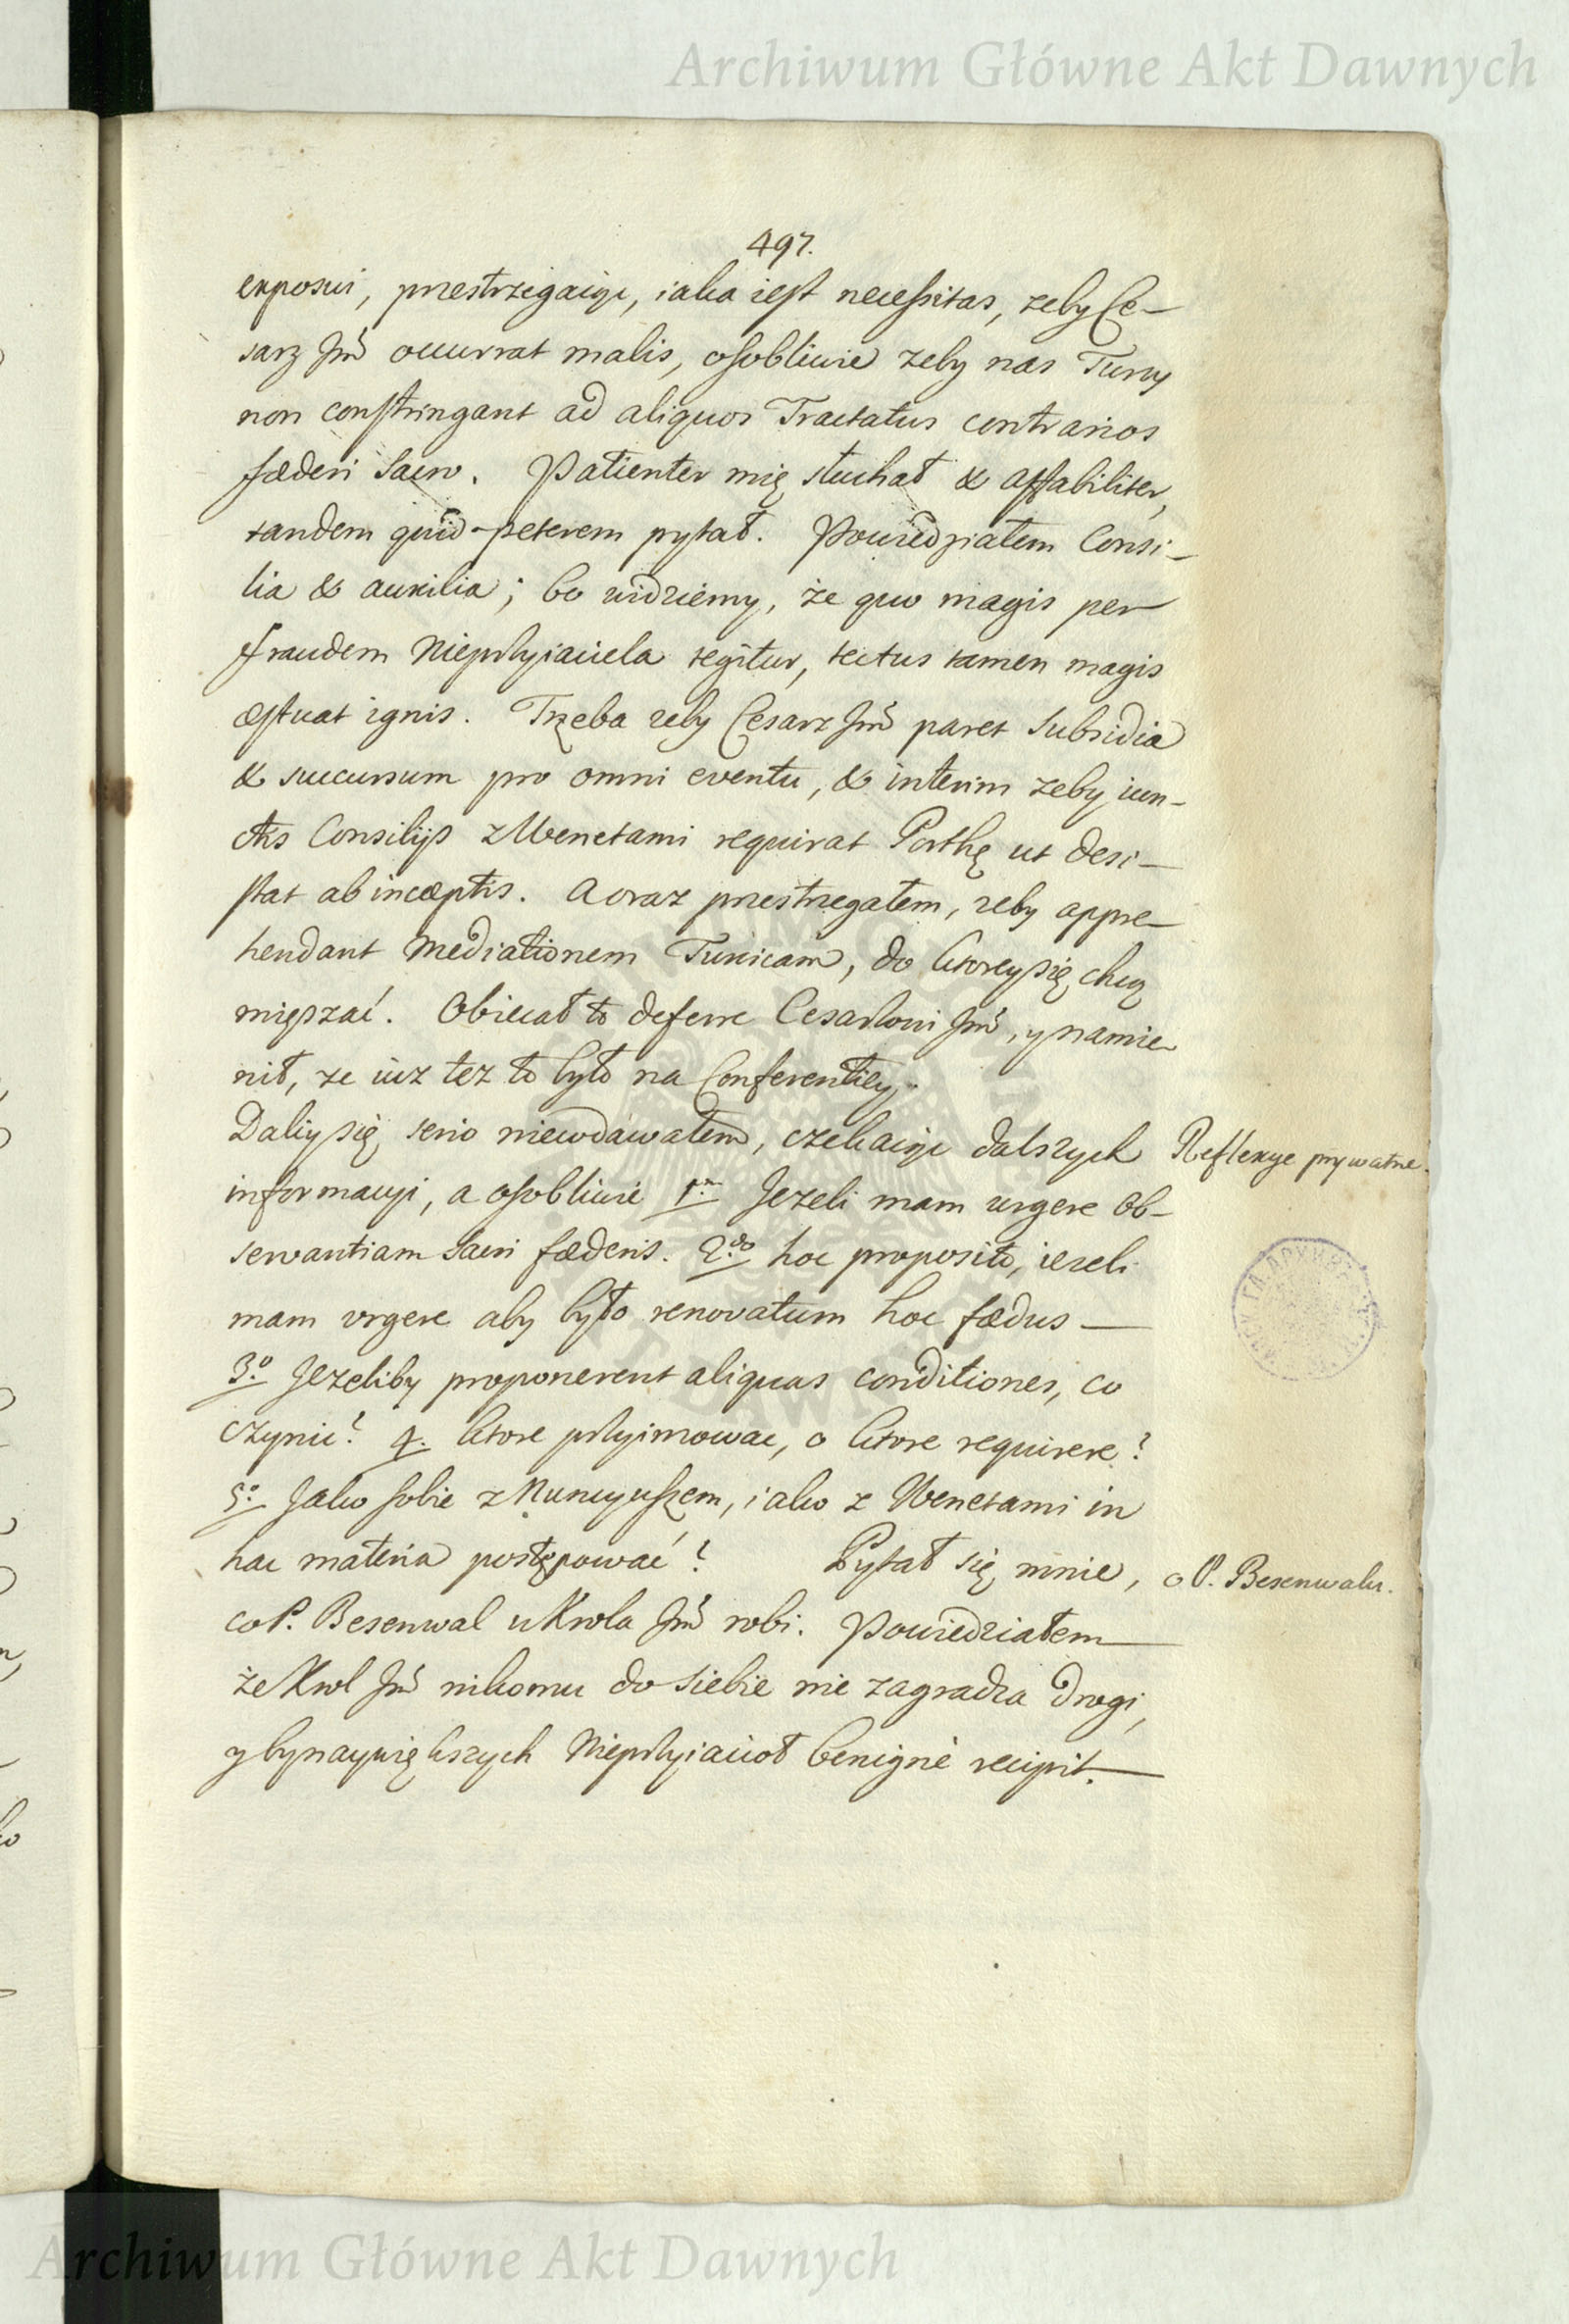 Archiwum Główne Akt Dawnych
497.
exposui, przestrzegaiąc, iaka iest necessitas, zeby Ce-
sarz Jmć occurrat malis, osobliwie zeby nas Turcy
non constringant ad aliquos Tractatus contrarios
fæderi Sacro. Patienter mię słuchał & affabiliter,
tandem quid peterem pytał. Powiedziałem Consi-
lia & auxilia; bo widziemy, że quo magis per
fraudem Nieprzyiaciela tegitur, tectus tamen magis
æstuat ignis. Trzeba zeby Cesarz Jmć paret Subsidia
& succursum pro omni eventu, & interim zeby iun-
ctis Consilijs z Wenetami requirat Porthę ut desi-
stat ab incæptis. A oraz przestrzegałem, zeby appre-
hendant Mediationem Turcicam, do ktorey się chcą
mięszać. Obiecał to deferre Cesarzowi Jmć, y namie-
nił, ze iuz tez to było na Conferentiey.
Daliy się serio niewdawałem, czekaiąc dalszych
Reflexye prywatne.
informacyi, a osobliwie 1.mo Jezeli mam urgere Ob-
servantiam Sacri fæderis. 2.do hoc proposito, iezeli
mam vrgere aby było renovatum hoc fædus —
3.o Jezeliby proponerent aliquas conditiones, co
czynic? 4. ktore przyimowac, o ktore requirere?
5.o Jako sobie z Nuncyuszem, iako z Wenetami in
hac materia postępować? Pytał się mnie,
o P. Besenwalu.
co P. Besenwal u Krola Jmć robi. Powiedziałem —
że Krol Jmć nikomu do siebie nie zagradza drogi,
y bynaywiększych Nieprzyiacioł benignè recipit. —
Archiwum Główne Akt Dawnych